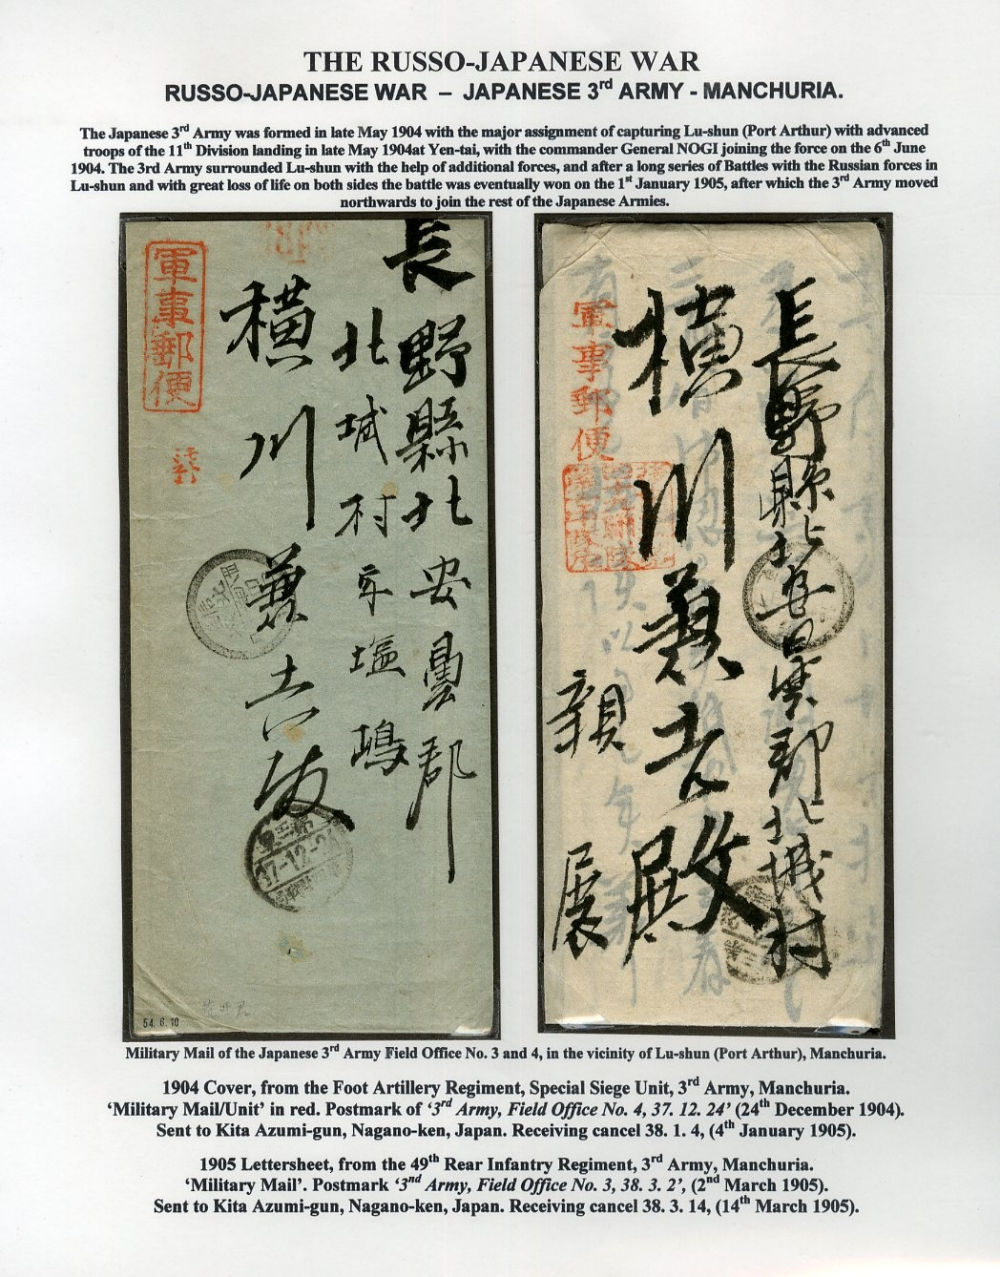 THE RUSSO-JAPANESE WAR
RUSSO-JAPANESE WAR – JAPANESE 3rd ARMY - MANCHURIA.
The Japanese 3rd Army was formed in late May 1904 with the major assignment of capturing Lu-shun (Port Arthur) with advanced
troops of the 11th Division landing in late May 1904at Yen-tai, with the commander General NOGI joining the force on the 6th June
1904. The 3rd Army surrounded Lu-shun with the help of additional forces, and after a long series of Battles with the Russian forces in
Lu-shun and with great loss of life on both sides the battle was eventually won on the 1st January 1905, after which the 3rd Army moved
northwards to join the rest of the Japanese Armies.
長野縣北安曇郡
北城村字塩嶋
横川兼吉殿
軍事郵便
37-12-24
54.6.10
長野縣北安曇郡北城村
横川兼吉殿
親展
軍事郵便
Military Mail of the Japanese 3rd Army Field Office No. 3 and 4, in the vicinity of Lu-shun (Port Arthur), Manchuria.
1904 Cover, from the Foot Artillery Regiment, Special Siege Unit, 3rd Army, Manchuria.
‘Military Mail/Unit’ in red. Postmark of ‘3rd Army, Field Office No. 4, 37. 12. 24’ (24th December 1904).
Sent to Kita Azumi-gun, Nagano-ken, Japan. Receiving cancel 38. 1. 4, (4th January 1905).
1905 Lettersheet, from the 49th Rear Infantry Regiment, 3rd Army, Manchuria.
‘Military Mail’. Postmark ‘3nd Army, Field Office No. 3, 38. 3. 2’, (2nd March 1905).
Sent to Kita Azumi-gun, Nagano-ken, Japan. Receiving cancel 38. 3. 14, (14th March 1905).